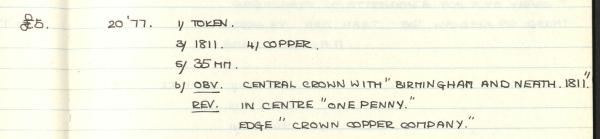 £5. 20'77. 1/ TOKEN.
3/ 1811. 4/ COPPER.
5/ 35 MM.
6/ OBV. CENTRAL CROWN WITH "BIRMINGHAM AND NEATH. 1811".
REV. IN CENTRE "ONE PENNY."
EDGE "CROWN COPPER COMPANY."